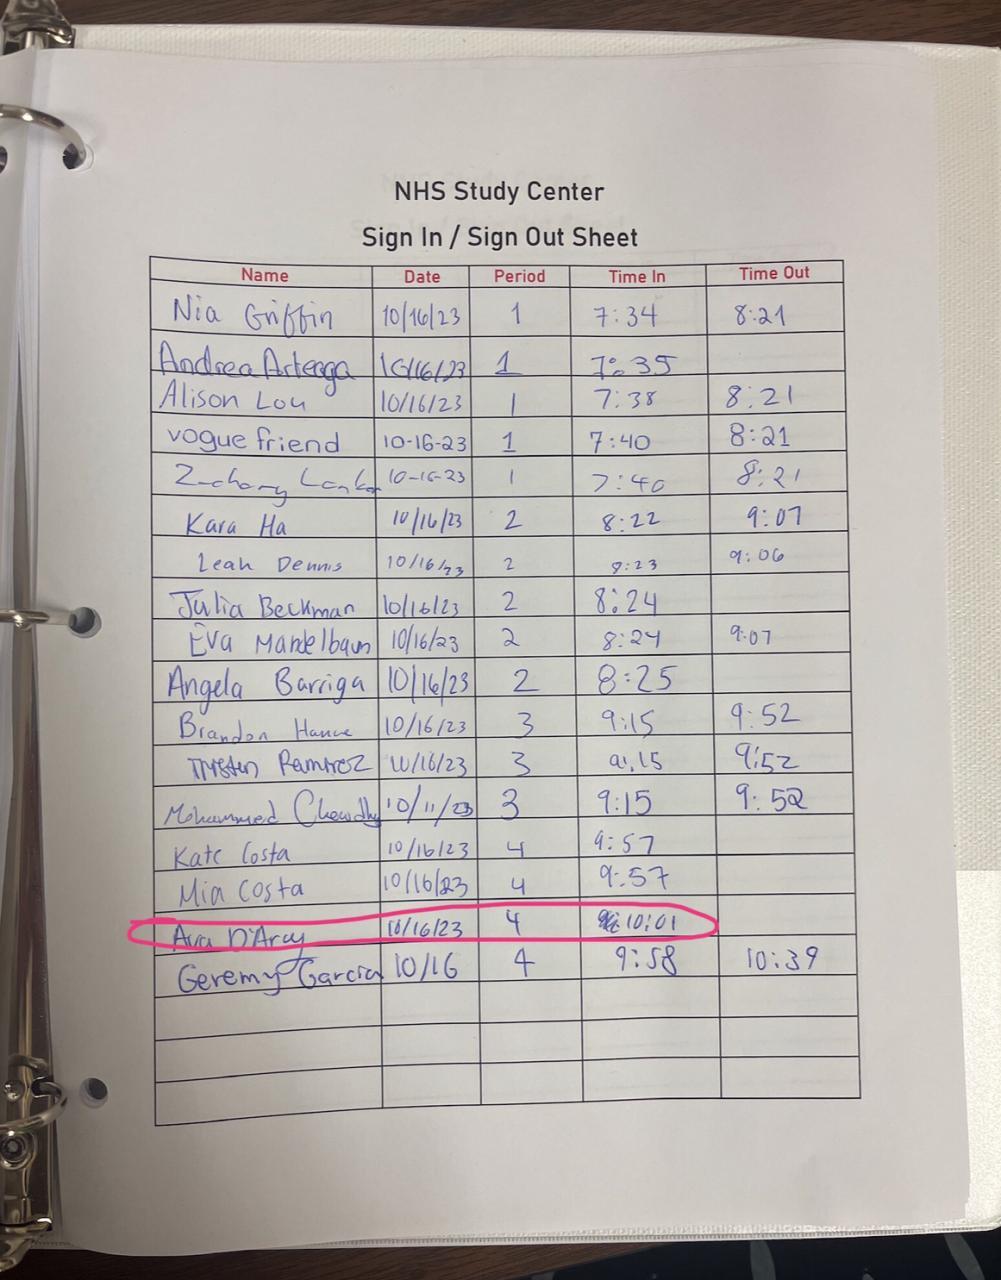 NHS Study Center
Sign In / Sign Out Sheet
Name Date Period Time In Time Out
Nia Griffin 10/16/23 1 7:34 8:21
Andrea Arteaga 10/16/23 1 7:35
Alison Lou 10/16/23 1 7:38 8:21
vogue friend 10-16-23 1 7:40 8:21
Zachary 10-16-23 1 7:40 8:21
Kara Ha 10/16/23 2 8:22 9:07
Leah Dennis 10/16/23 2 8:23 9:06
Julia Beckman 10/16/23 2 8:24
Eva Mandelbaum 10/16/23 2 8:24 9:07
Angela Barriga 10/16/23 2 8:25
Brandon 10/16/23 3 9:15 9:52
Ramirez 10/16/23 3 9:15 9:52
Mohammed 10/11/23 3 9:15 9:52
Kate Costa 10/16/23 4 9:57
Mia Costa 10/16/23 4 9:57
D'Arcy 10/16/23 4 10:01
Geremy Garcia 10/16 4 9:58 10:39